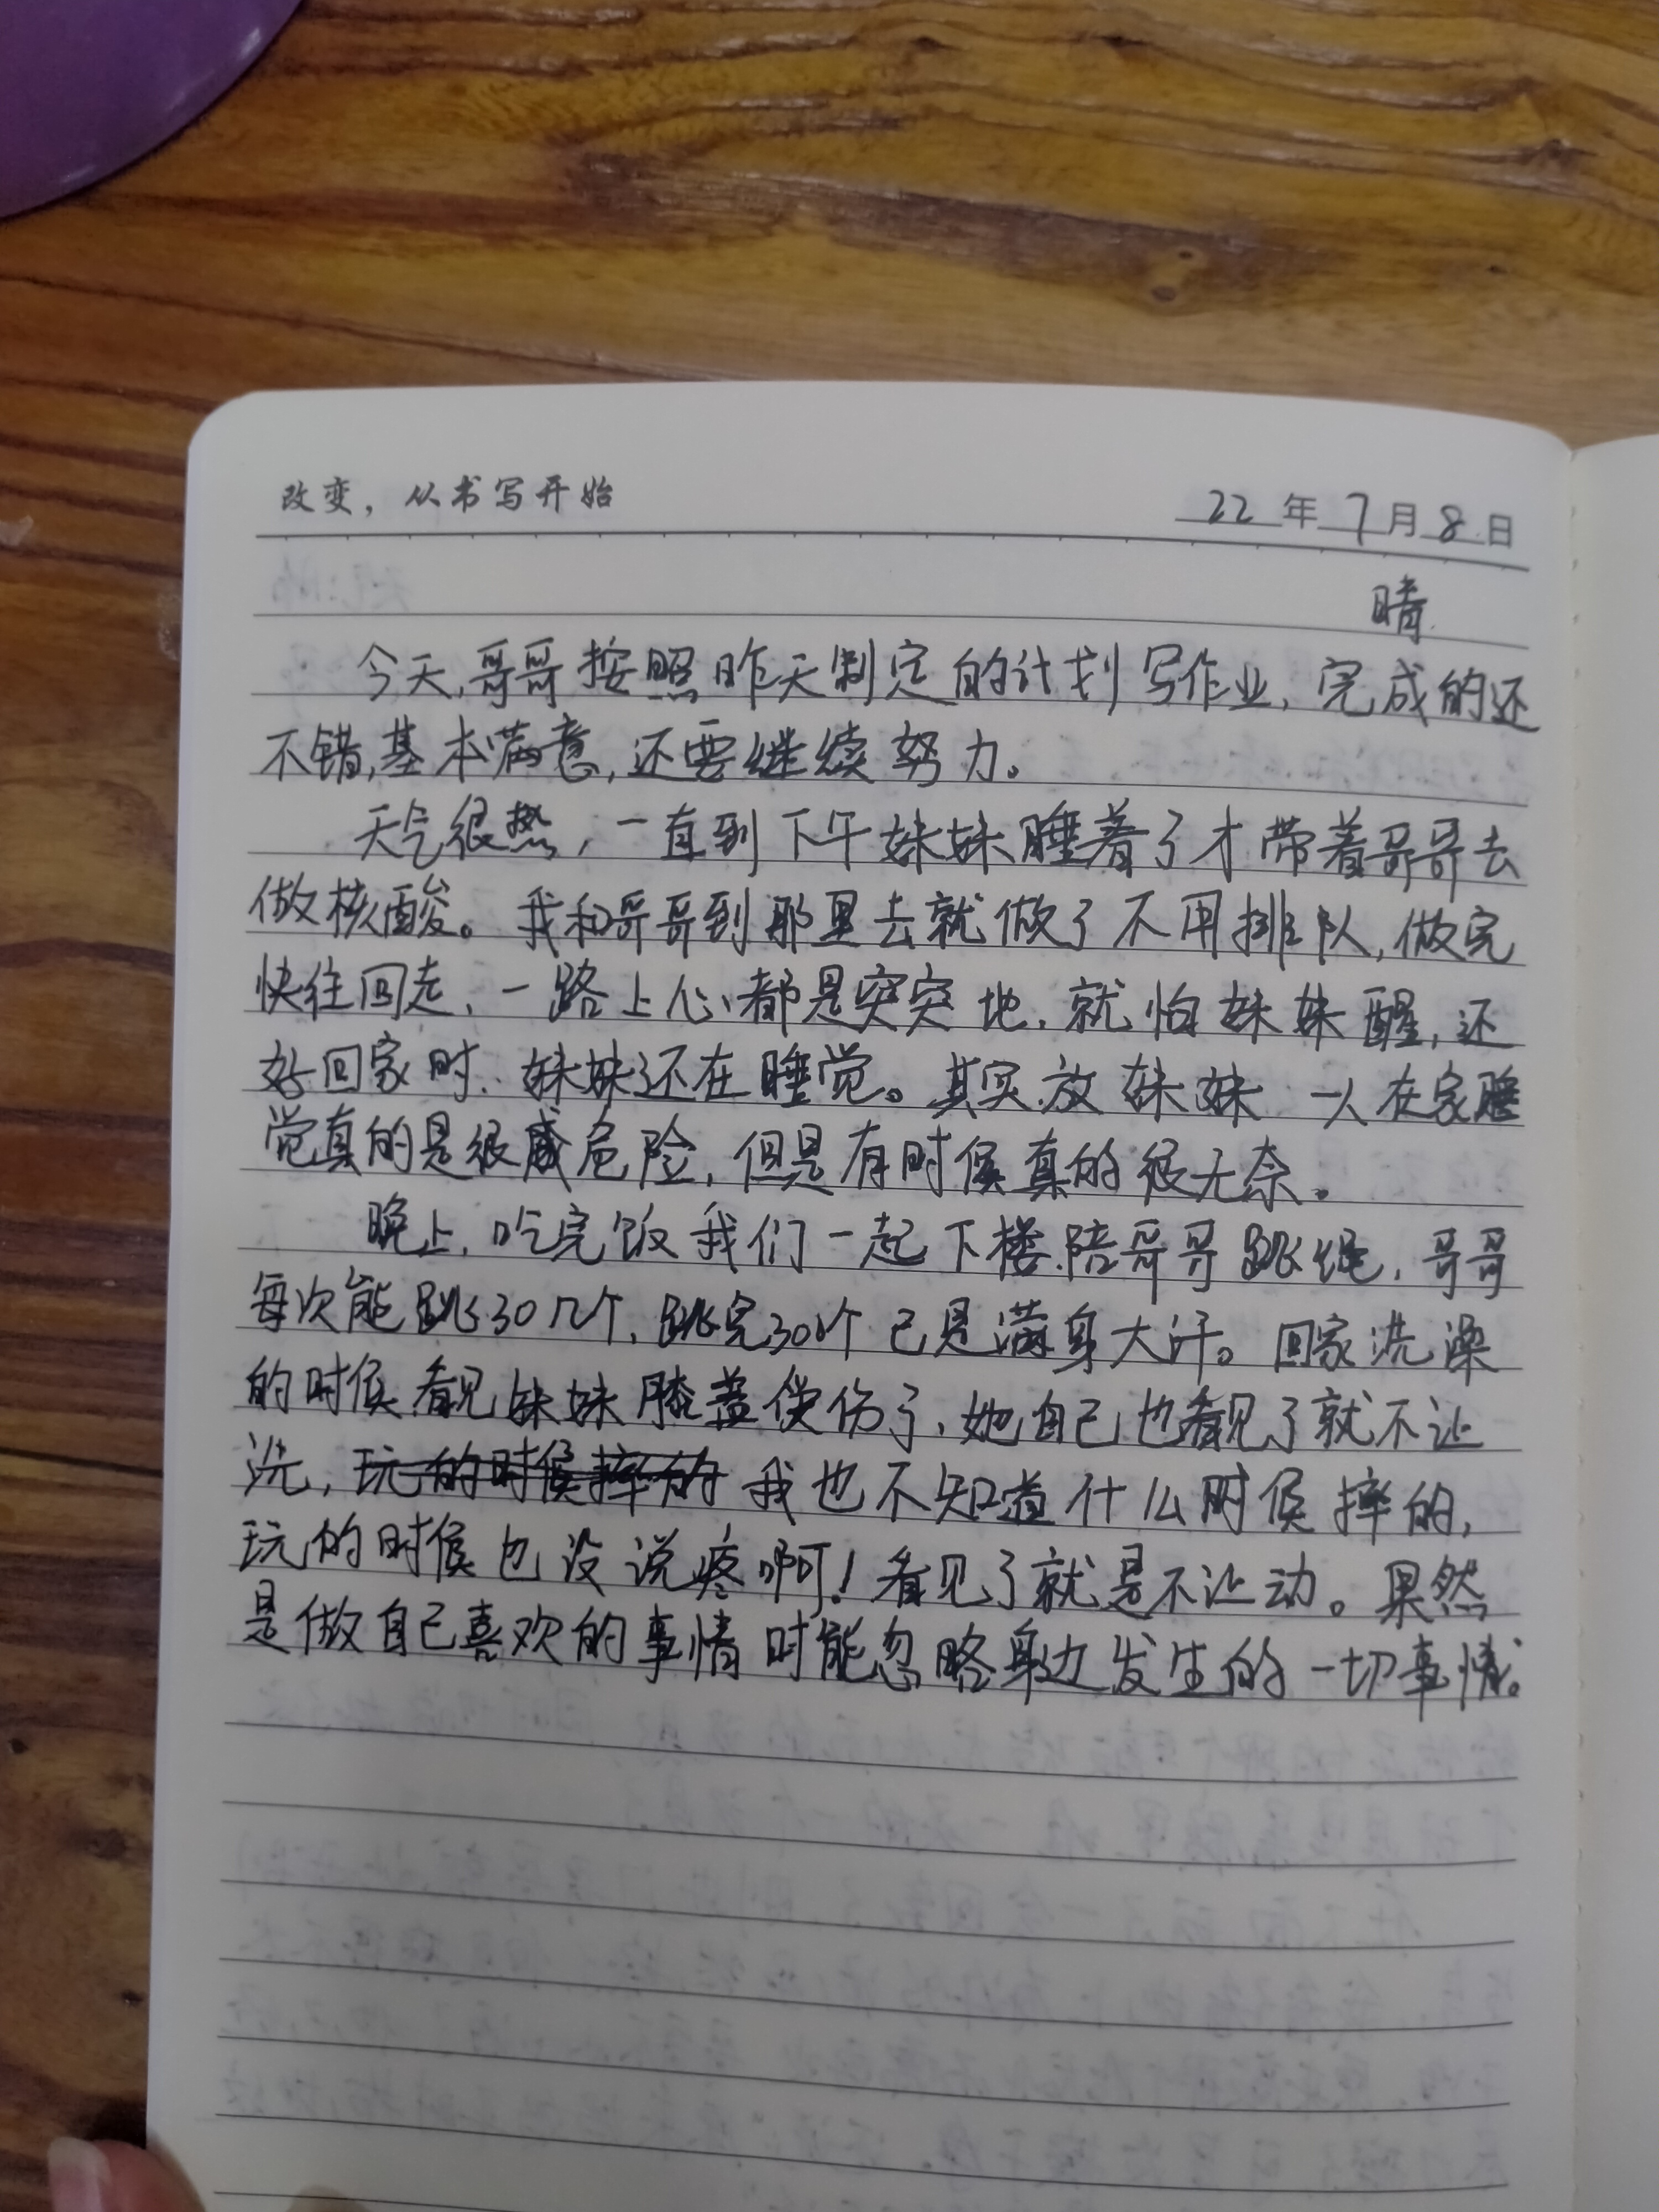 改变，从书写开始
22年7月8日
晴
今天，哥哥按照昨天制定的计划写作业，完成的还
不错，基本满意，还要继续努力。
天气很热，一直到下午妹妹睡着了才带着哥哥去
做核酸。我和哥哥到那里去就做了不用排队，做完
快往回走，一路上心都是突突地，就怕妹妹醒，还
好回家时，妹妹还在睡觉。其实放妹妹一人在家睡
觉真的是很危险，但是有时候真的很无奈。
晚上，吃完饭我们一起下楼陪哥哥跳绳，哥哥
每次能跳30几个，跳完300个已是满身大汗。回家洗澡
的时候看见妹妹膝盖受伤了，她自己也看见了就不让
洗，玩的时候摔的我也不知道什么时候摔的，
玩的时候也没说疼啊！看见了就是不让动。果然
是做自己喜欢的事情时能忽略身边发生的一切事情。